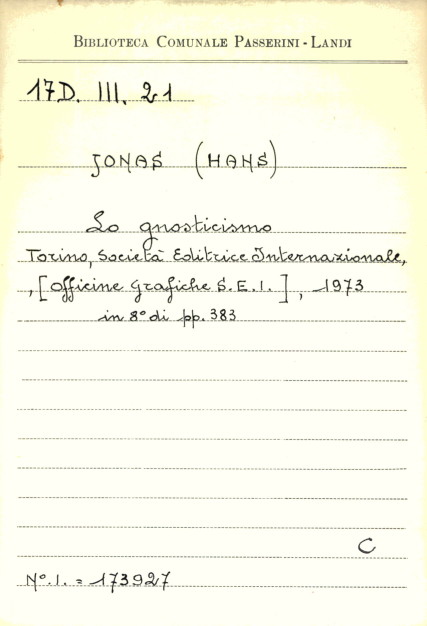 BIBLIOTECA COMUNALE PASSERINI - LANDI
17D. III. 21
JONAS (HANS)
Lo gnosticismo
Torino, Società Editrice Internazionale,
, [Officine Grafiche S.E.I.], 1973
in 8° di pp. 383
C
N°. I. = 173927